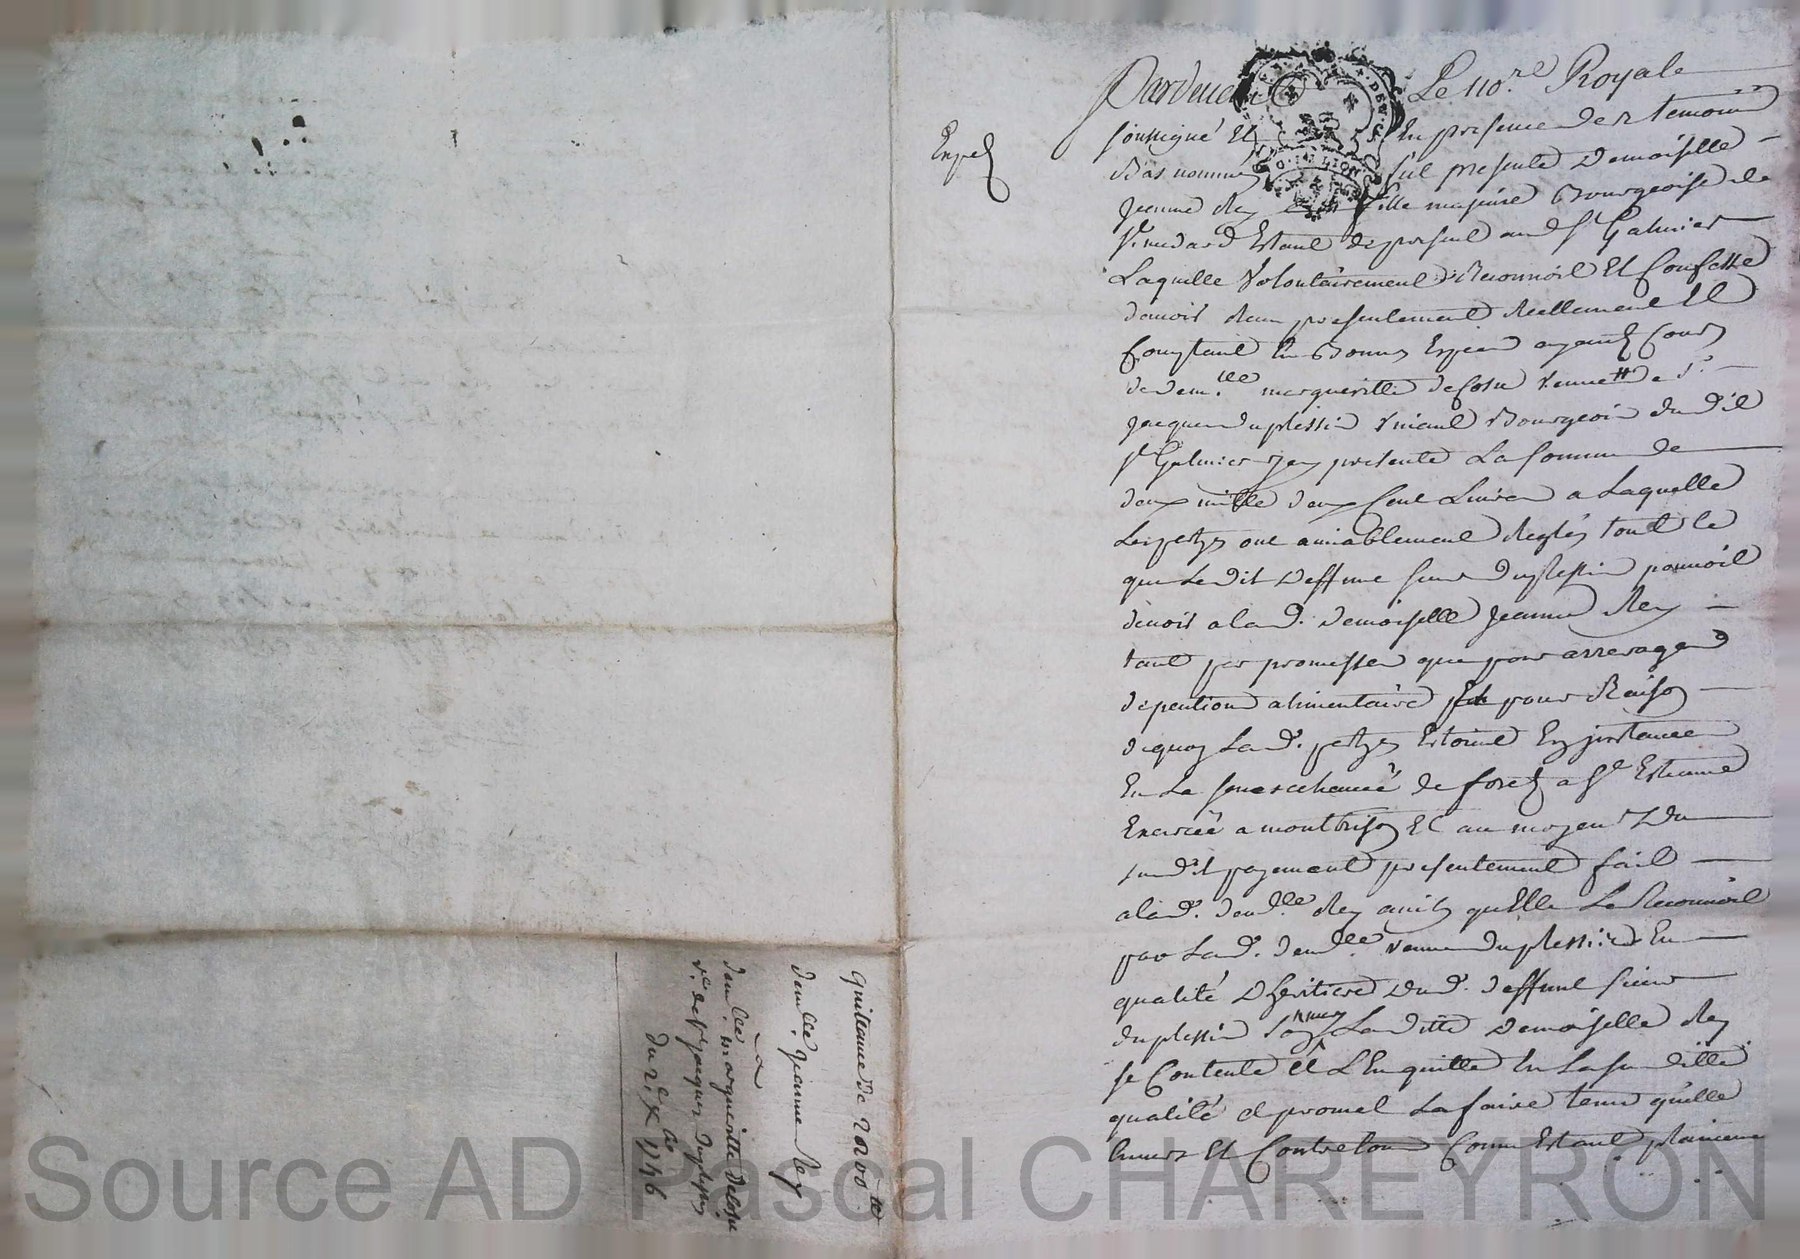 Pardevant Le no.re Royale
soussigné Et En presence des temoins
Bas nommés fut presente Demoiselle
Jeanne Rey fille majeure Bourgeoise de
St medard Estant de present aud St Galmier
Laquelle Volontairement Reconnoit Et Confesse
davoir Receu presentement Reellement Et
Comptant En Bonnes Espèces ayant Cours
de dem.lle margueritte veuve de Sr
Jacques duplessis Bourgeois dudit
St Galmier Icy presente La somme de
deux mille deux Cent Livres a Laquelle
Les partyes ont amiablement Reglés tout le
que Ledit Deffunt sieur Duplessis pouvoit
devoir a lad. Demoiselle Jeanne Rey
tant par promesses que pour arrerages
de pention alimentaire pour Raison
dequoy Lesd. partyes Estoient En jnstance
En La senechaucé de forest a St Estienne
Exercée a montbrison Et au moyen Du
susdit payement presentement fait
a lad. dem.lle Rey ainsy quElle Le Reconnoit
par Lad. dem.lle veuve duplessis En
qualité Dheritiere Dud. deffunt sieur
duplessis son Laditte Demoiselle Rey
se Contente Et L'En quitte En La susditte
qualité et promet La faire tenir quitte
Envers Et Contre tous Comme Estant plainement
Exped
Quittance de 2020 tt
demlle Jeanne Rey
a
demlle margueritte
ve de Sr Jaques duplessis
du 1746
Source AD Pascal CHAREYRON